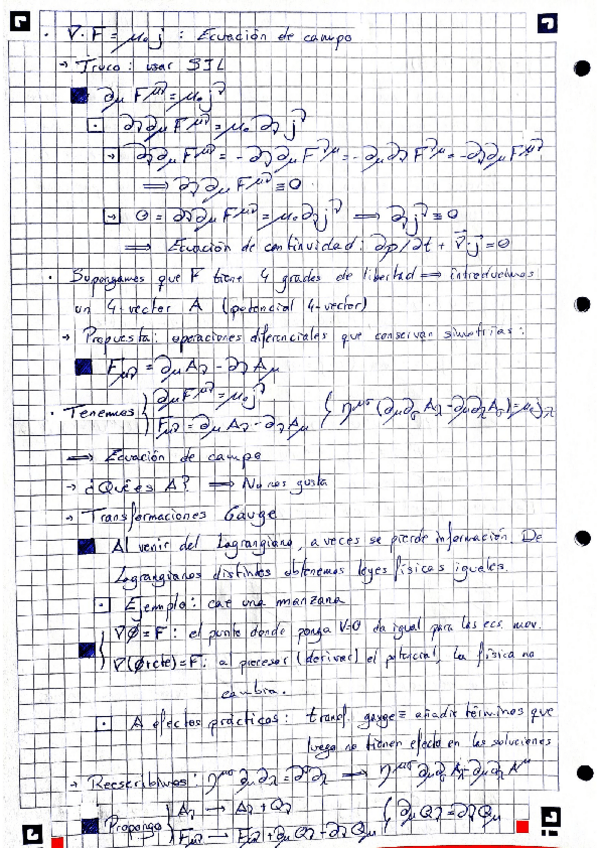 · ∇·F = μ₀ j : Ecuación de campo
→ Truco: usar SIL
∂μ F^μν = μ₀ j^ν
∂ν∂μ F^μν = μ₀ ∂ν j^ν
→ ∂ν∂μ F^μν = -∂ν∂μ F^νμ = -∂μ∂ν F^νμ = -∂ν∂μ F^μν
⟹ ∂ν∂μ F^μν ≡ 0
→ 0 = ∂ν∂μ F^μν = μ₀ ∂ν j^ν ⟹ ∂ν j^ν ≡ 0
⟹ Ecuación de continuidad: ∂ρ/∂t + ∇·j = 0
· Supongamos que F tiene 4 grados de libertad ⟹ introducimos
un 4-vector A (potencial 4-vector)
→ Propuesta: operaciones diferenciales que conservan simetrías:
Fμν = ∂μ Aν - ∂ν Aμ
· Tenemos { ∂μ F^μν = μ₀ j^ν
Fμν = ∂μ Aν - ∂ν Aμ { η^μσ (∂μ∂σ Aλ - ∂μ∂λ Aσ) = μ₀ jλ
⟹ Ecuación de campo
→ ¿Qué es A? ⟹ No nos gusta
→ Transformaciones Gauge
Al venir del Lagrangiano, a veces se pierde información. De
Lagrangianos distintos obtenemos leyes físicas iguales.
Ejemplo: cae una manzana
∇Ø = F : el punto donde ponga V=0 da igual para las ecs. mov.
∇(Ø+cte) = F : al procesar (derivar) el potencial, la física no
cambia.
A efectos prácticos: transf. gauge ≡ añadir términos que
luego no tienen efecto en las soluciones
→ Reescribimos: η^μσ ∂μ∂λ = ∂^σ∂λ ⟹ η^μσ ∂μ∂σ Aλ - ∂μ∂λ A^μ
Propongo { Aν → Aν + Qν
Fμν → Fμν + ∂μ Qν - ∂ν Qμ { ∂μ Qν = ∂ν Qμ